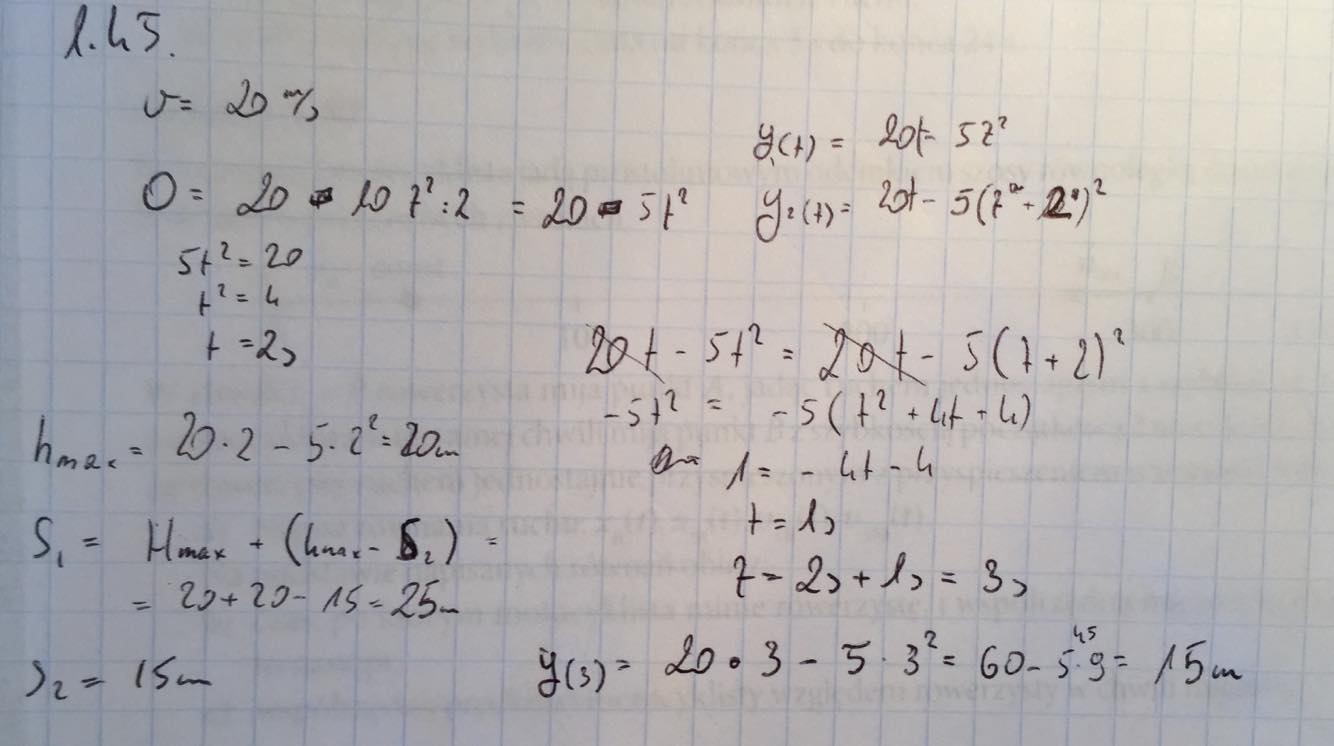 1.45.
v = 20 m/s
0 = 20 - 10 t² : 2 = 20 - 5t²
5t² = 20
t² = 4
t = 2s
h max = 20 · 2 - 5 · 2² = 20m
S₁ = Hmax + (hmax - S₂) =
= 20 + 20 - 15 = 25m
S₂ = 15m
y₁(t) = 20t - 5t²
y₂(t) = 20t - 5(t + 2)²
20t - 5t² = 20t - 5(t + 2)²
-5t² = -5(t² + 4t + 4)
1 = - 4t - 4
t = 1s
t = 2s + 1s = 3s
y(3) = 20 · 3 - 5 · 3² = 60 - 5·9 = 15m
45